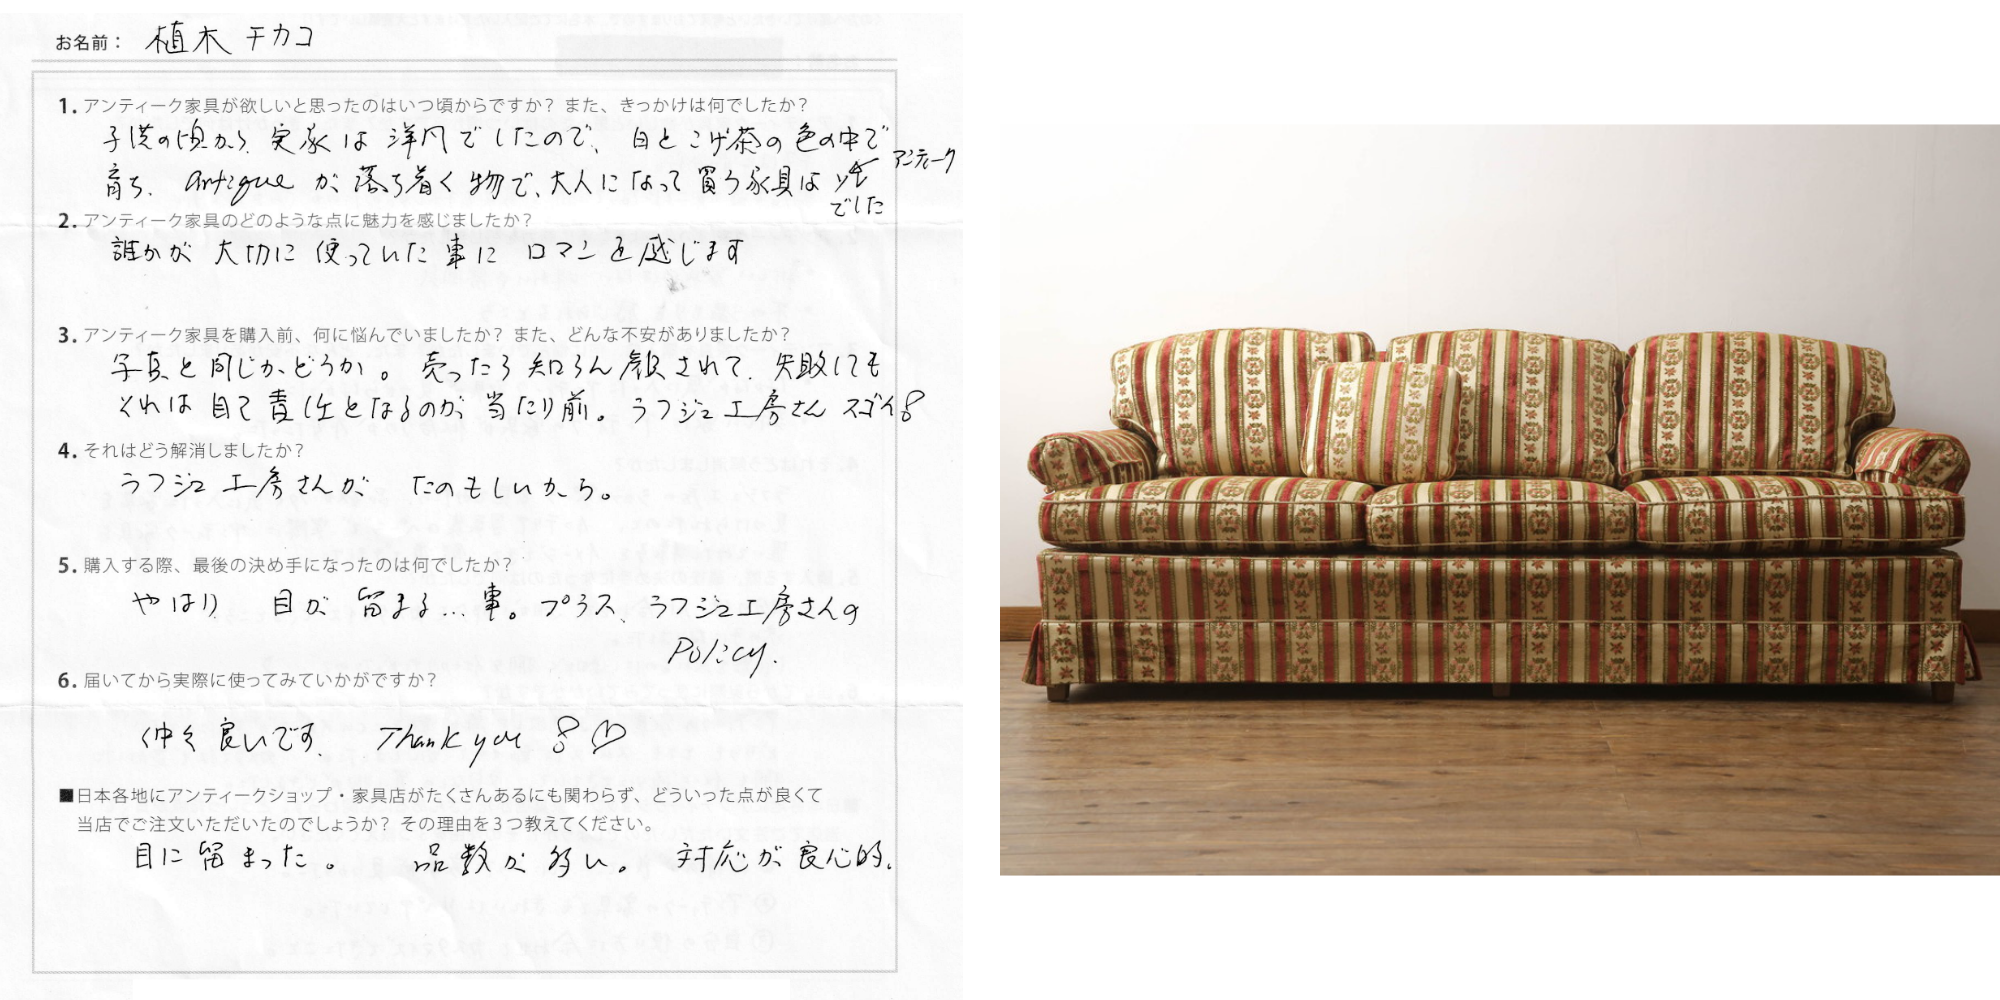 お名前： 植木 チカコ
1. アンティーク家具が欲しいと思ったのはいつ頃からですか？ また、きっかけは何でしたか？
子供の頃から、実家は洋風でしたので、白とこげ茶の色の中で
育ち、antiqueが落ち着く物で、大人になって買う家具は全てアンティーク
でした
2. アンティーク家具のどのような点に魅力を感じましたか？
誰かが大切に使っていた事にロマンを感じます
3. アンティーク家具を購入前、何に悩んでいましたか？ また、どんな不安がありましたか？
写真と同じかどうか。売ったら知らん顔されて、失敗しても
それは自己責任となるのが当たり前。ラフジュ工房さんスゴイ
4. それはどう解消しましたか？
ラフジュ工房さんが たのもしいから。
5. 購入する際、最後の決め手になったのは何でしたか？
やはり 目が留まる…事。プラス、ラフジュ工房さんの
Policy.
6. 届いてから実際に使ってみていかがですか？
仲々良いです、Thank you
■日本各地にアンティークショップ・家具店がたくさんあるにも関わらず、どういった点が良くて
当店でご注文いただいたのでしょうか？ その理由を３つ教えてください。
目に留まった。 品数が多い。 対応が良心的。